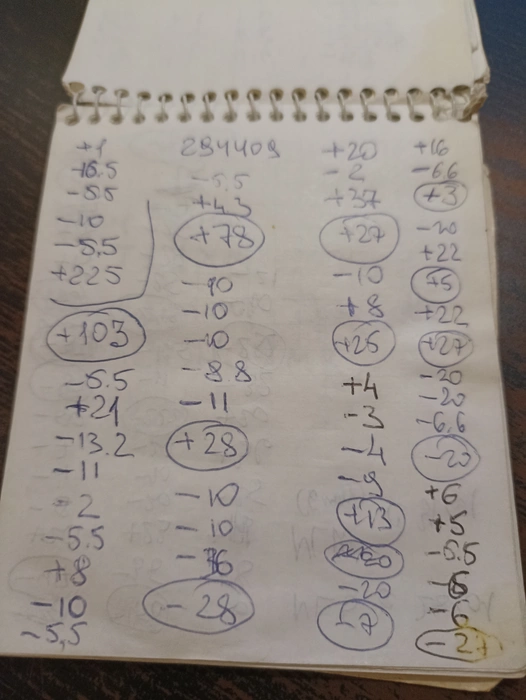 +1
-5.5
-10
-5,5
+225
+103
-5.5
+21
-13.2
-11
2
-5.5
+8
-10
-5,5
294409
-5.5
+43
+78
-10
-10
-10
-8.8
-11
+28
-10
-10
-28
+20
-2
+37
+27
-10
+8
+25
+4
-3
-4
-9
+13
-20
-7
+16
-6.6
+3
-20
+22
+5
+22
+27
-20
-20
-6.6
-20
+6
+5
-5.5
-6
-6
-27